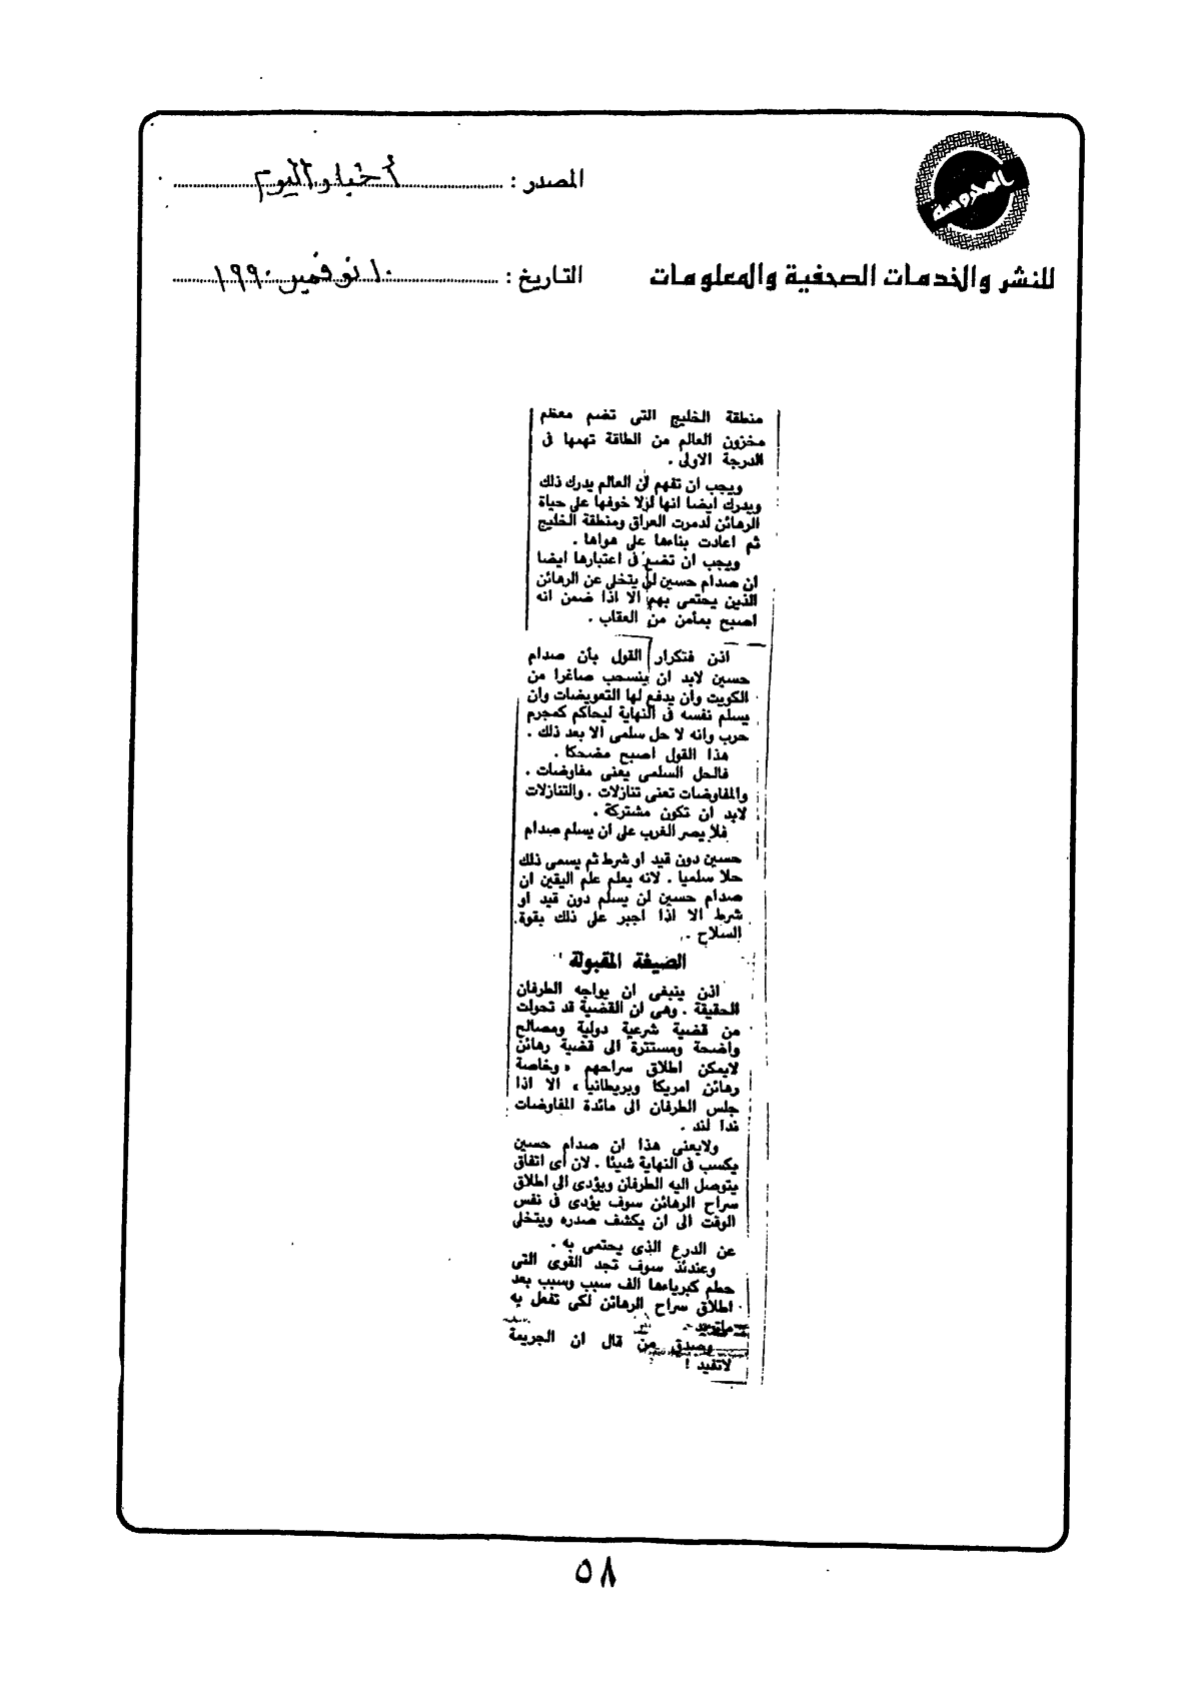 المحروسة
للنشر والخدمات الصحفية والمعلومات
المصدر : أخبار اليوم
التاريخ : ١٠ نوفمبر ١٩٩٠
منطقة الخليج التى تضم معظم
مخزون العالم من الطاقة تهمها فى
الدرجة الاولى .
ويجب ان تفهم أن العالم يدرك ذلك
ويدرك ايضا انها لولا خوفها على حياة
الرهائن لدمرت العراق ومنطقة الخليج
ثم اعادت بناءها على هواها .
ويجب ان تضع فى اعتبارها ايضا
ان صدام حسين لن يتخلى عن الرهائن
الذين يحتمى بهم الا اذا ضمن انه
اصبح بمأمن من العقاب .
اذن فتكرار القول بأن صدام
حسين لابد ان ينسحب صاغرا من
الكويت وان يدفع لها التعويضات وان
يسلم نفسه فى النهاية ليحاكم كمجرم
حرب وانه لا حل سلمى الا بعد ذلك .
هذا القول اصبح مضحكا .
فالحل السلمى يعنى مفاوضات .
والمفاوضات تعنى تنازلات . والتنازلات
لابد ان تكون مشتركة .
فلا يصر الغرب على ان يسلم صدام
حسين دون قيد او شرط ثم يسمى ذلك
حلا سلميا . لانه يعلم علم اليقين ان
صدام حسين لن يسلم دون قيد او
شرط الا اذا اجبر على ذلك بقوة
السلاح .
الصيغة المقبولة
اذن ينبغى ان يواجه الطرفان
الحقيقة . وهى ان القضية قد تحولت
من قضية شرعية دولية ومصالح
واضحة ومستترة الى قضية رهائن
لايمكن اطلاق سراحهم ، وخاصة
رهائن امريكا وبريطانيا ، الا اذا
جلس الطرفان الى مائدة المفاوضات
ندا لند .
ولايعنى هذا ان صدام حسين
يكسب فى النهاية شيئا . لان أى اتفاق
يتوصل اليه الطرفان ويؤدى الى اطلاق
سراح الرهائن سوف يؤدى فى نفس
الوقت الى ان يكشف صدره ويتخلى
عن الدرع الذى يحتمى به .
وعندئذ سوف تجد القوى التى
حطم كبرياءها الف سبب وسبب بعد
اطلاق سراح الرهائن لكى تفعل به
ماتريد .
وصدق من قال ان الجريمة
لاتفيد !
٥٨